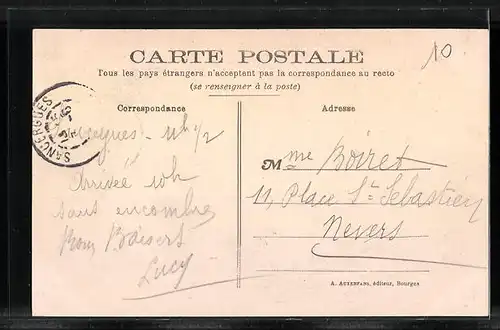 10
CARTE POSTALE
Tous les pays étrangers n'acceptent pas la correspondance au recto
(se renseigner à la poste)
Correspondance
Adresse
SANCERGUES
Arrivée 10h
sans encombre
Bons Baisers
Lucy
Mme Boiret
11, Place St Sébastien
Nevers
A. AUXENFANS, éditeur, Bourges